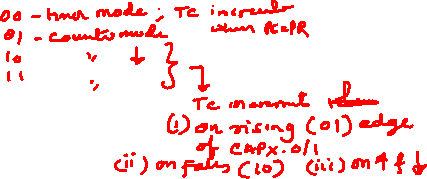 00 - timer mode ; TC increments when PC=PR
01 - counter mode
10 " ↓
11 "
TC increment
(i) on rising (01) edge
of CAPX.0/1
(ii) on falls (10) (iii) on ↑ & ↓